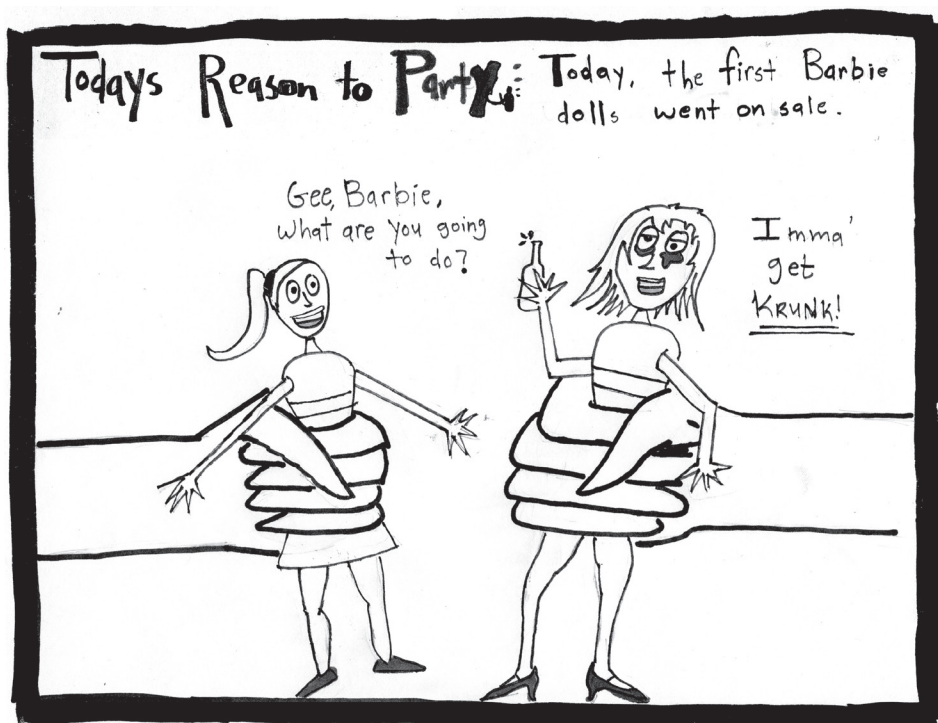 Todays Reason to Party: Today, the first Barbie
dolls went on sale.
Gee, Barbie,
what are you going
to do?
Imma'
get
KRUNK!